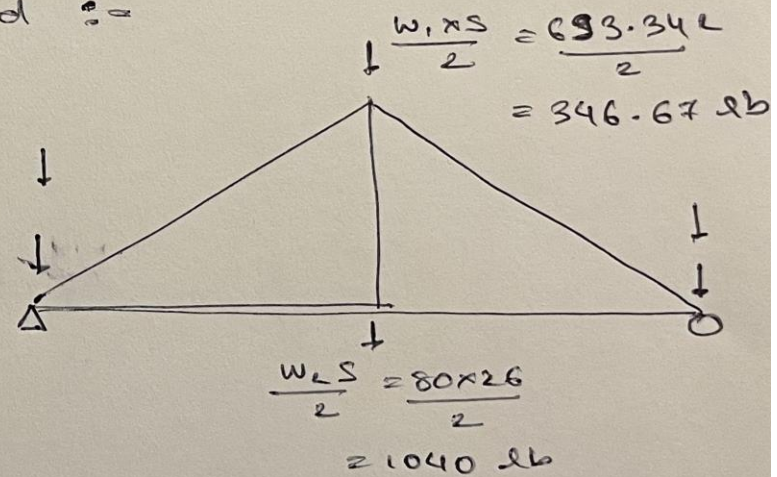 d :-
W₁ x S / 2 = 693.342 / 2
= 346.67 lb
W₂ S / 2 = 80 x 26 / 2
= 1040 lb